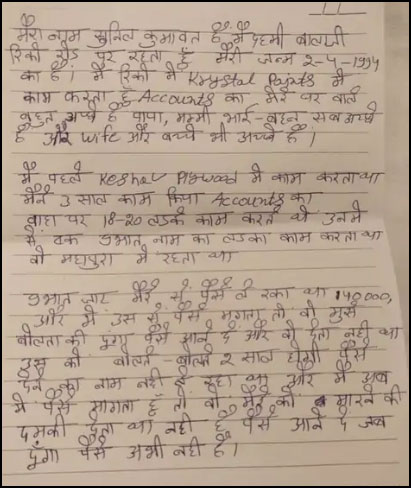 मेरा नाम सुनिल कुमावत है मैं दहमी बालाजी
रिको रोड पर रहता हूँ मेरी जन्म 2-4-1994
का है। मैं रिको में Krystal Paints में
काम करता हूँ Accounts का मेरे घर वाले
बहुत अच्छे है पापा, मम्मी भाई-बहन सब अच्छे
है और wife और बच्चे भी अच्छे है।
मैं पहले Keshav Plywood में काम करता था
मैने 3 साल काम किया Accounts का
वाहा पर 18-20 लडके काम करते थे उनमें
से एक प्रभात नाम का लडका काम करता था
वो महापुरा में रहता था
प्रभात जाट मेरे से पैसे ले रका था 140,000,
और में उस से पैसे मगता तो वो मुझे
बोलता की दूंगा पैसे आने दे और वो देता नही था
उस को बोलते-बोलते 2 साल होगी पैसे
देने का नाम नही ले रहा था और में अब
में पैसे मागता हूँ तो वो मेरे को मारने की
दमकी देता था नही है पैसे आने दे जब
दूंगा पैसे अभी नही है।